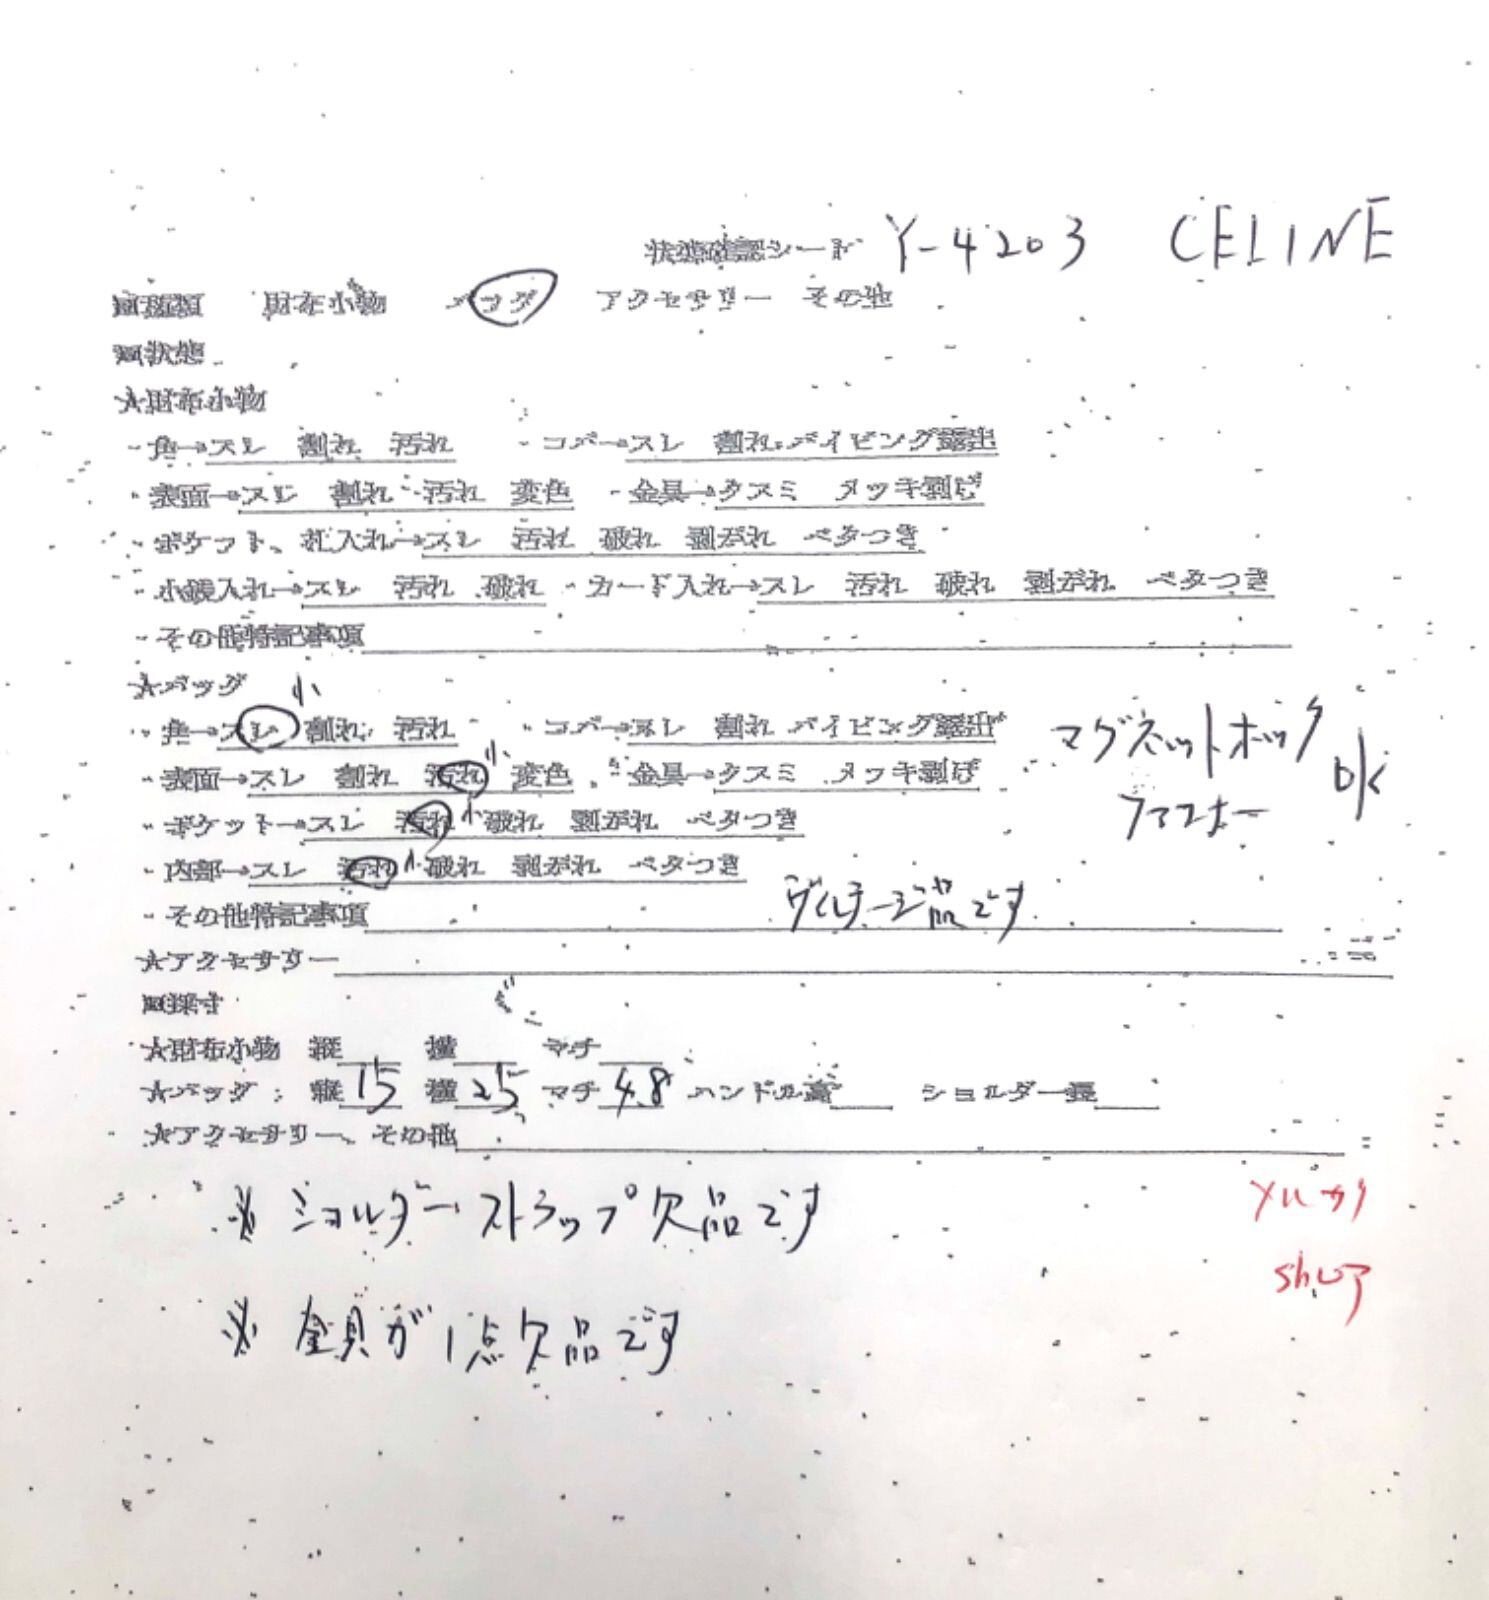 状態確認シート Y-4203 CELINE
■種類 財布小物 バッグ アクセサリー その他
■状態
★財布小物
・角→スレ 割れ 汚れ ・コバ→スレ 割れ パイピング露出
・表面→スレ 割れ 汚れ 変色 ・金具→クスミ メッキ剥げ
・ポケット、札入れ→スレ 汚れ 破れ 剥がれ ベタつき
・小銭入れ→スレ 汚れ 破れ ・カード入れ→スレ 汚れ 破れ 剥がれ ベタつき
・その他特記事項
★バッグ
小
・角→スレ 割れ 汚れ ・コバ→スレ 割れ パイピング露出
マグネットホック
・表面→スレ 割れ 汚れ 小 変色 ・金具→クスミ メッキ剥げ
OK
・ポケット→スレ 汚れ 小 破れ 剥がれ ベタつき
ファスナー
・内部→スレ 汚れ 小 破れ 剥がれ ベタつき
・その他特記事項 ヴィンテージ品です
★アクセサリー
■採寸
★財布小物 縦 横 マチ
★バッグ 縦 15 横 25 マチ 4.8 ハンドル高 ショルダー長
★アクセサリー、その他
※ ショルダーストラップ欠品です
※ 金具が1点欠品です